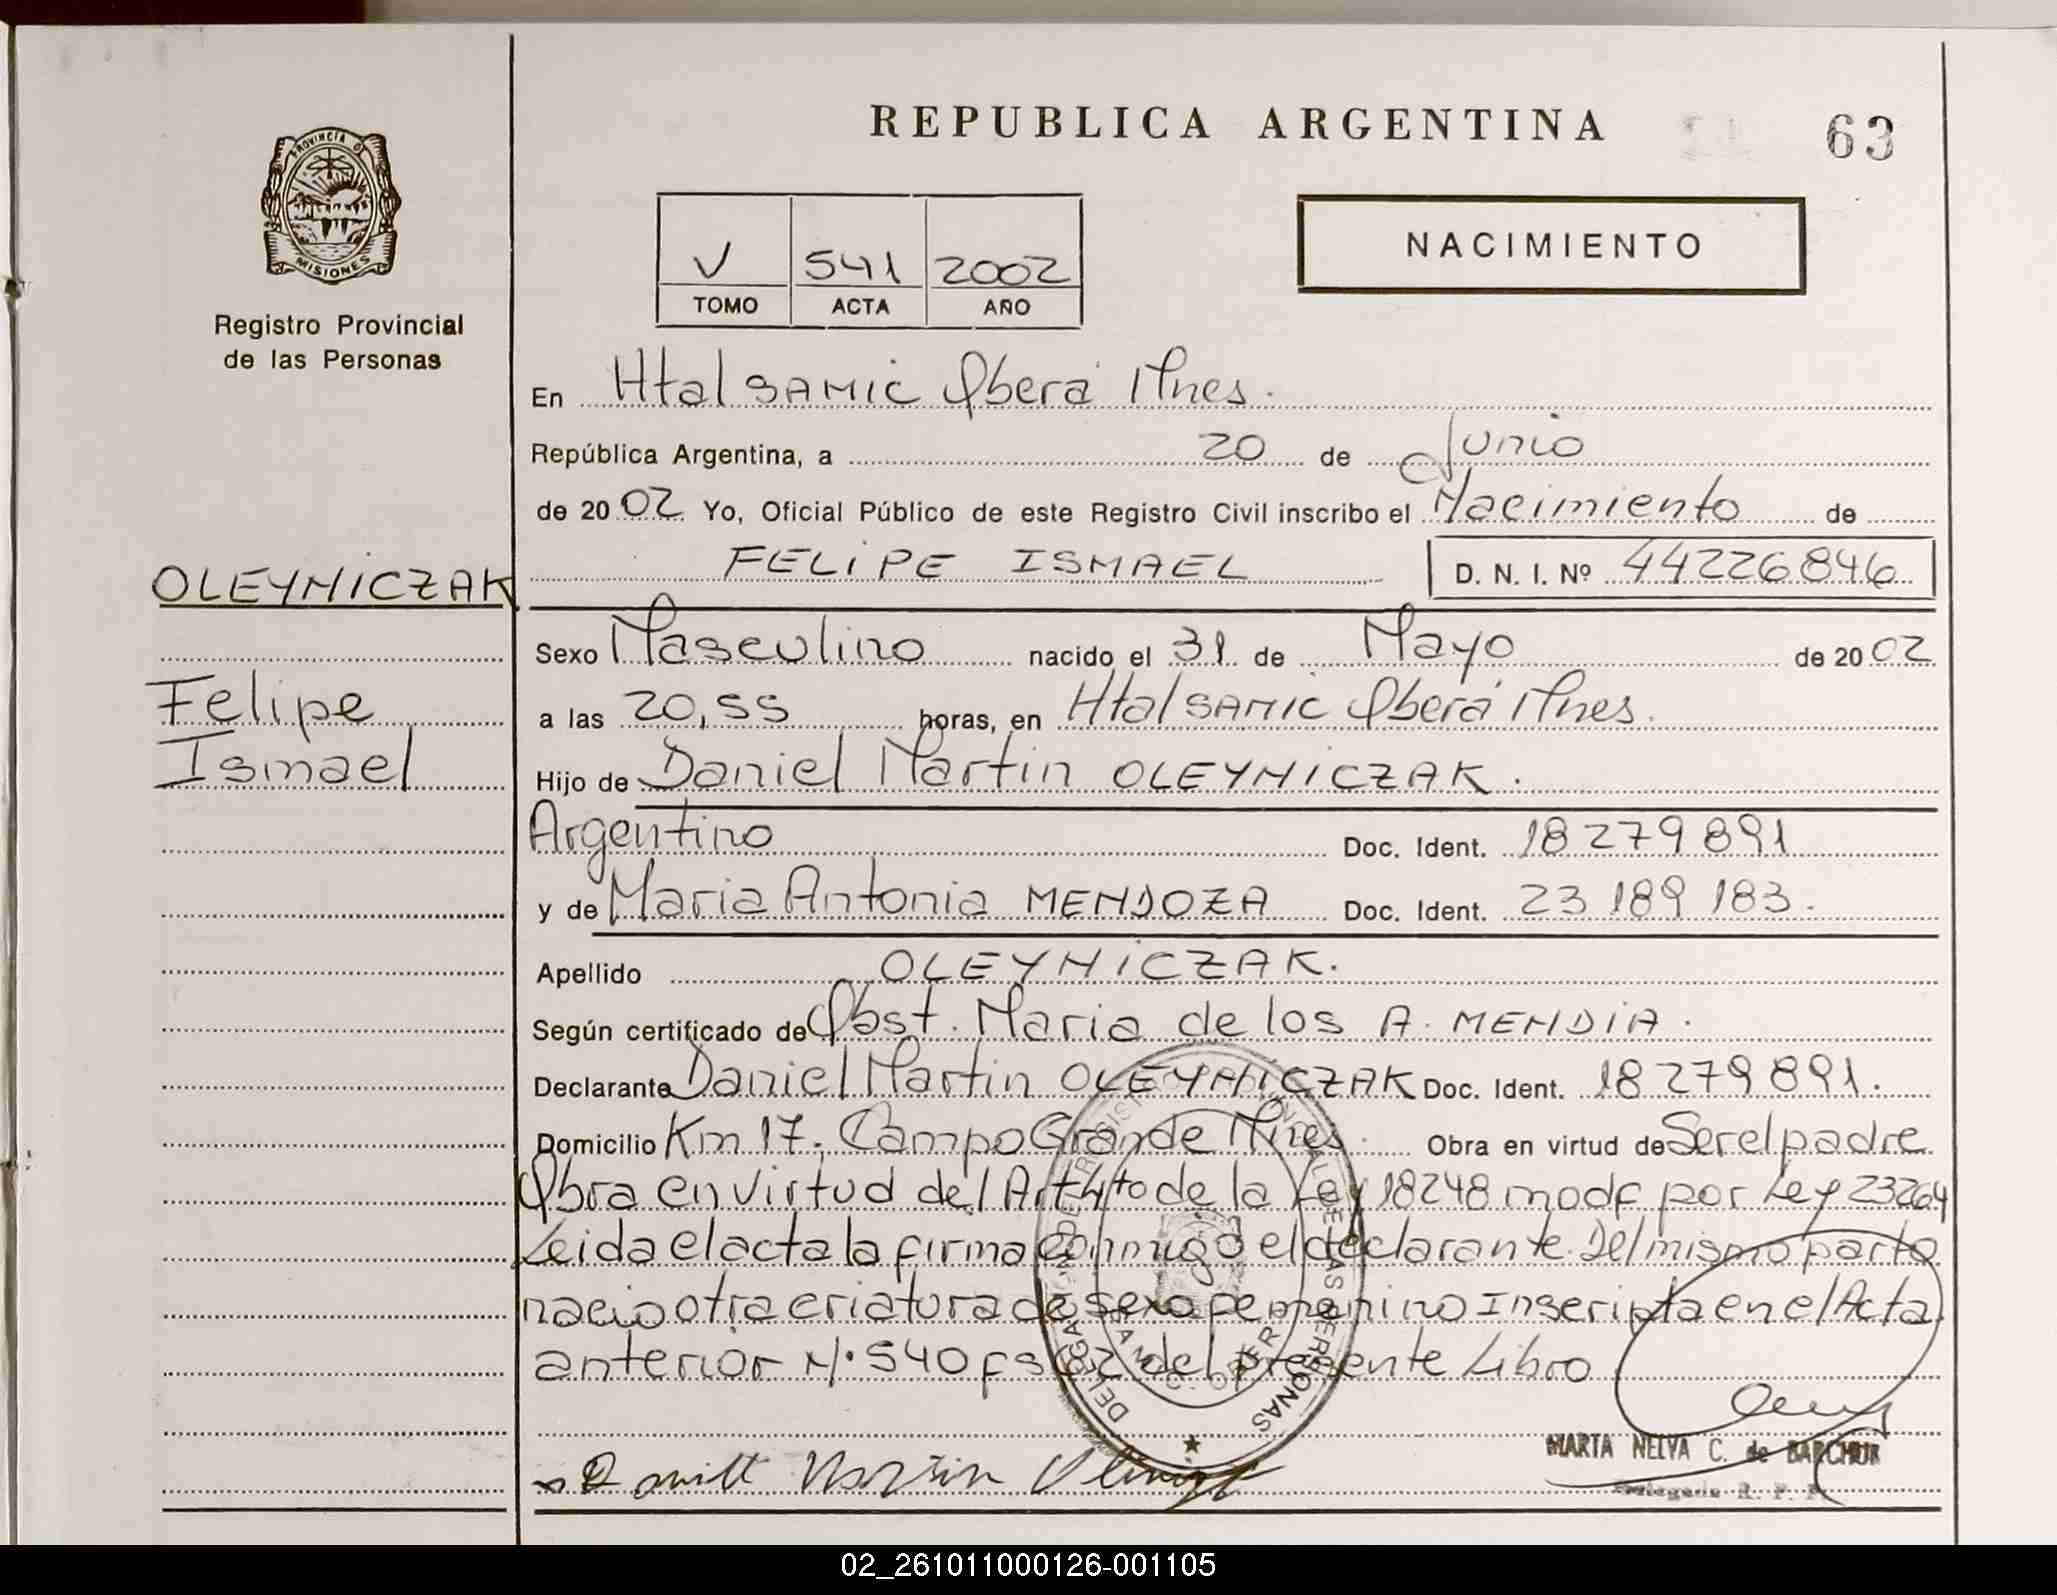 REPUBLICA ARGENTINA
63
PROVINCIA D
MISIONES
Registro Provincial
de las Personas
V 541 2002
TOMO ACTA AÑO
NACIMIENTO
En Htal SAMIC Oberá Mnes.
República Argentina, a 20 de Junio
de 2002 Yo, Oficial Público de este Registro Civil inscribo el Nacimiento de
FELIPE ISMAEL D. N. I. Nº 44226846
OLEYNICZAK
Sexo Masculino nacido el 31 de Mayo de 2002
Felipe
a las 20,55 horas, en Htal SAMIC Oberá Mnes.
Ismael
Hijo de Daniel Martin OLEYNICZAK.
Argentino Doc. Ident. 18 279 891
y de Maria Antonia MENDOZA Doc. Ident. 23 189 183.
Apellido OLEYNICZAK.
Según certificado de Obst. Maria de los A. MENDIA.
Declarante Daniel Martin OLEYNICZAK Doc. Ident. 18 279 891.
Domicilio Km 17. Campo Grande Mnes. Obra en virtud de Ser el padre
Obra en virtud del Art 4to de la Ley 18248 modf por Ley 23264
Leida el acta la firma conmigo el declarante. Del mismo parto
nacio otra criatura de sexo femenino Inscripta en el Acta
anterior N. 540 fs 62 del presente Libro
MARTA NELVA C. de BARCHUK
Delegada R. P. P.
02_261011000126-001105